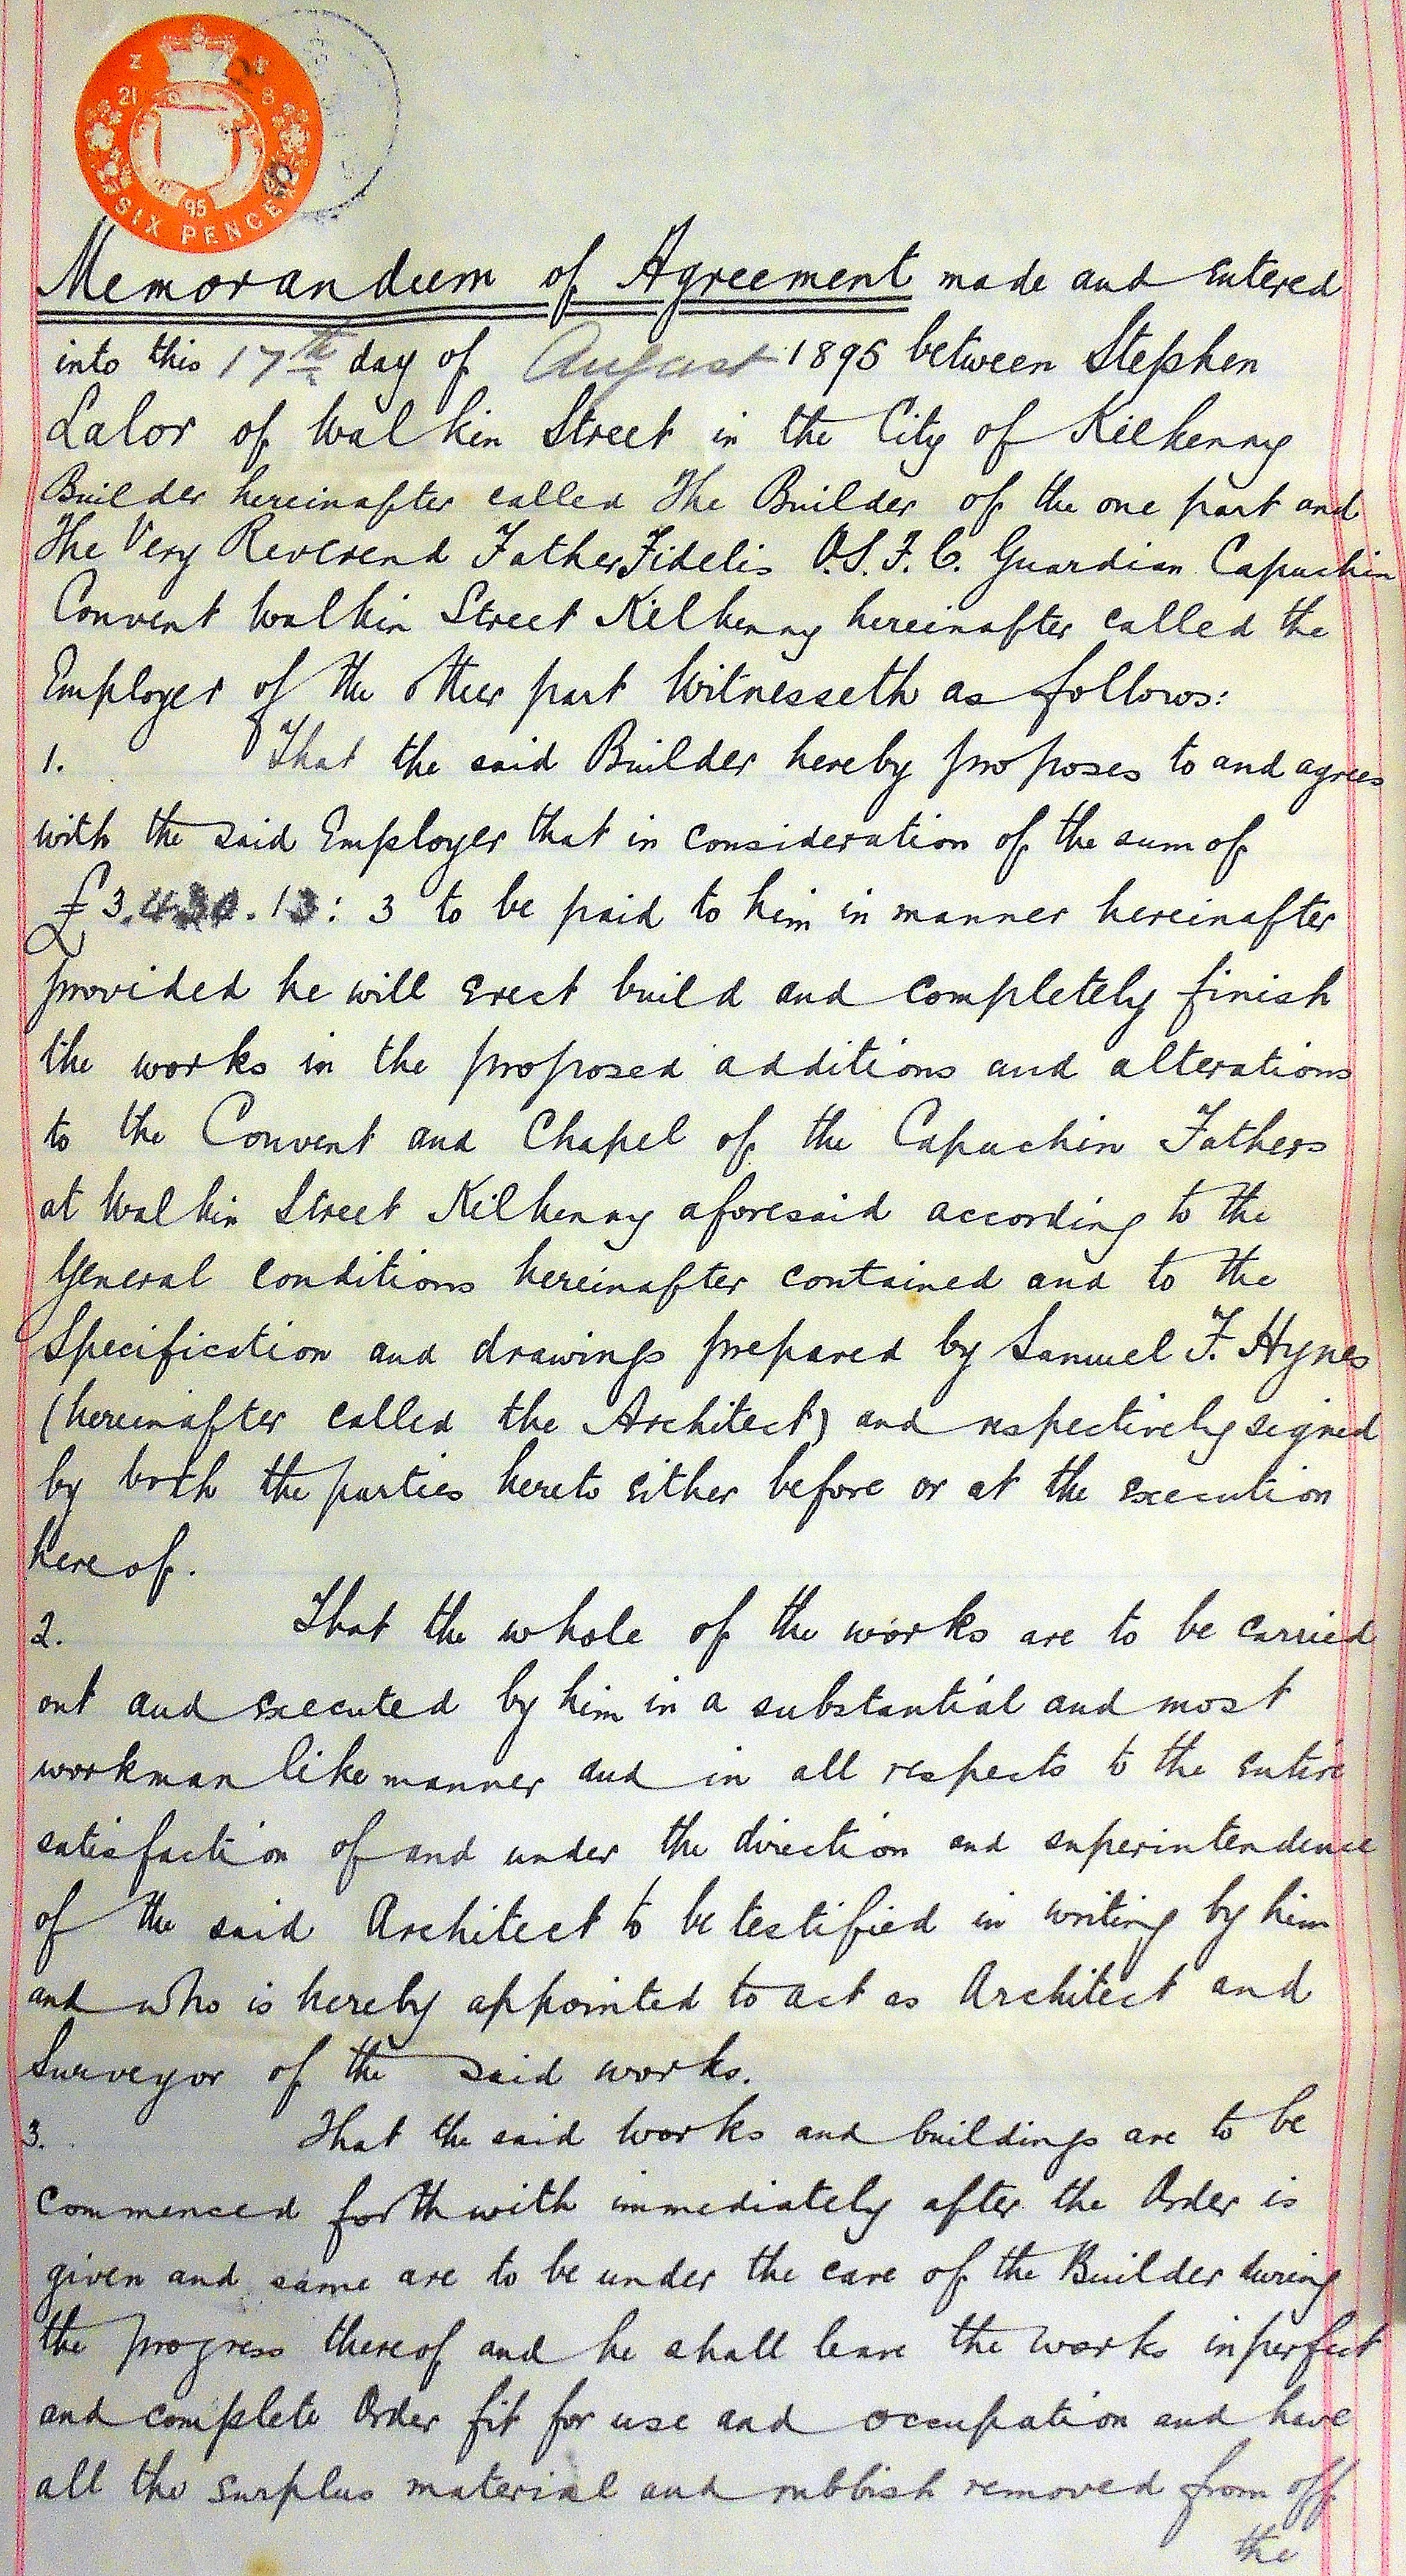 Z
21 8
95
SIX PENCE
Memorandum of Agreement made and entered
into this 17th day of August 1895 between Stephen
Lalor of Walkin Street in the City of Kilkenny
Builder hereinafter called The Builder of the one part and
The Very Reverend Father Fidelis O.S.F.C. Guardian Capuchin
Convent Walkin Street Kilkenny hereinafter called the
Employer of the other part Witnesseth as follows:
1. That the said Builder hereby proposes to and agrees
with the said Employer that in consideration of the sum of
£3.430.13:3 to be paid to him in manner hereinafter
provided he will erect build and completely finish
the works in the proposed additions and alterations
to the Convent and Chapel of the Capuchin Fathers
at Walkin Street Kilkenny aforesaid according to the
General conditions hereinafter contained and to the
Specification and drawings prepared by Samuel F. Hynes
(hereinafter called the Architect) and respectively signed
by both the parties hereto either before or at the execution
hereof.
2. That the whole of the works are to be carried
out and executed by him in a substantial and most
workman like manner and in all respects to the entire
satisfaction of and under the direction and superintendence
of the said Architect to be testified in writing by him
and who is hereby appointed to act as Architect and
Surveyor of the said works.
3. That the said works and buildings are to be
commenced forthwith immediately after the Order is
given and same are to be under the care of the Builder during
the progress thereof and he shall leave the works in perfect
and complete Order fit for use and occupation and have
all the surplus material and rubbish removed from off
the